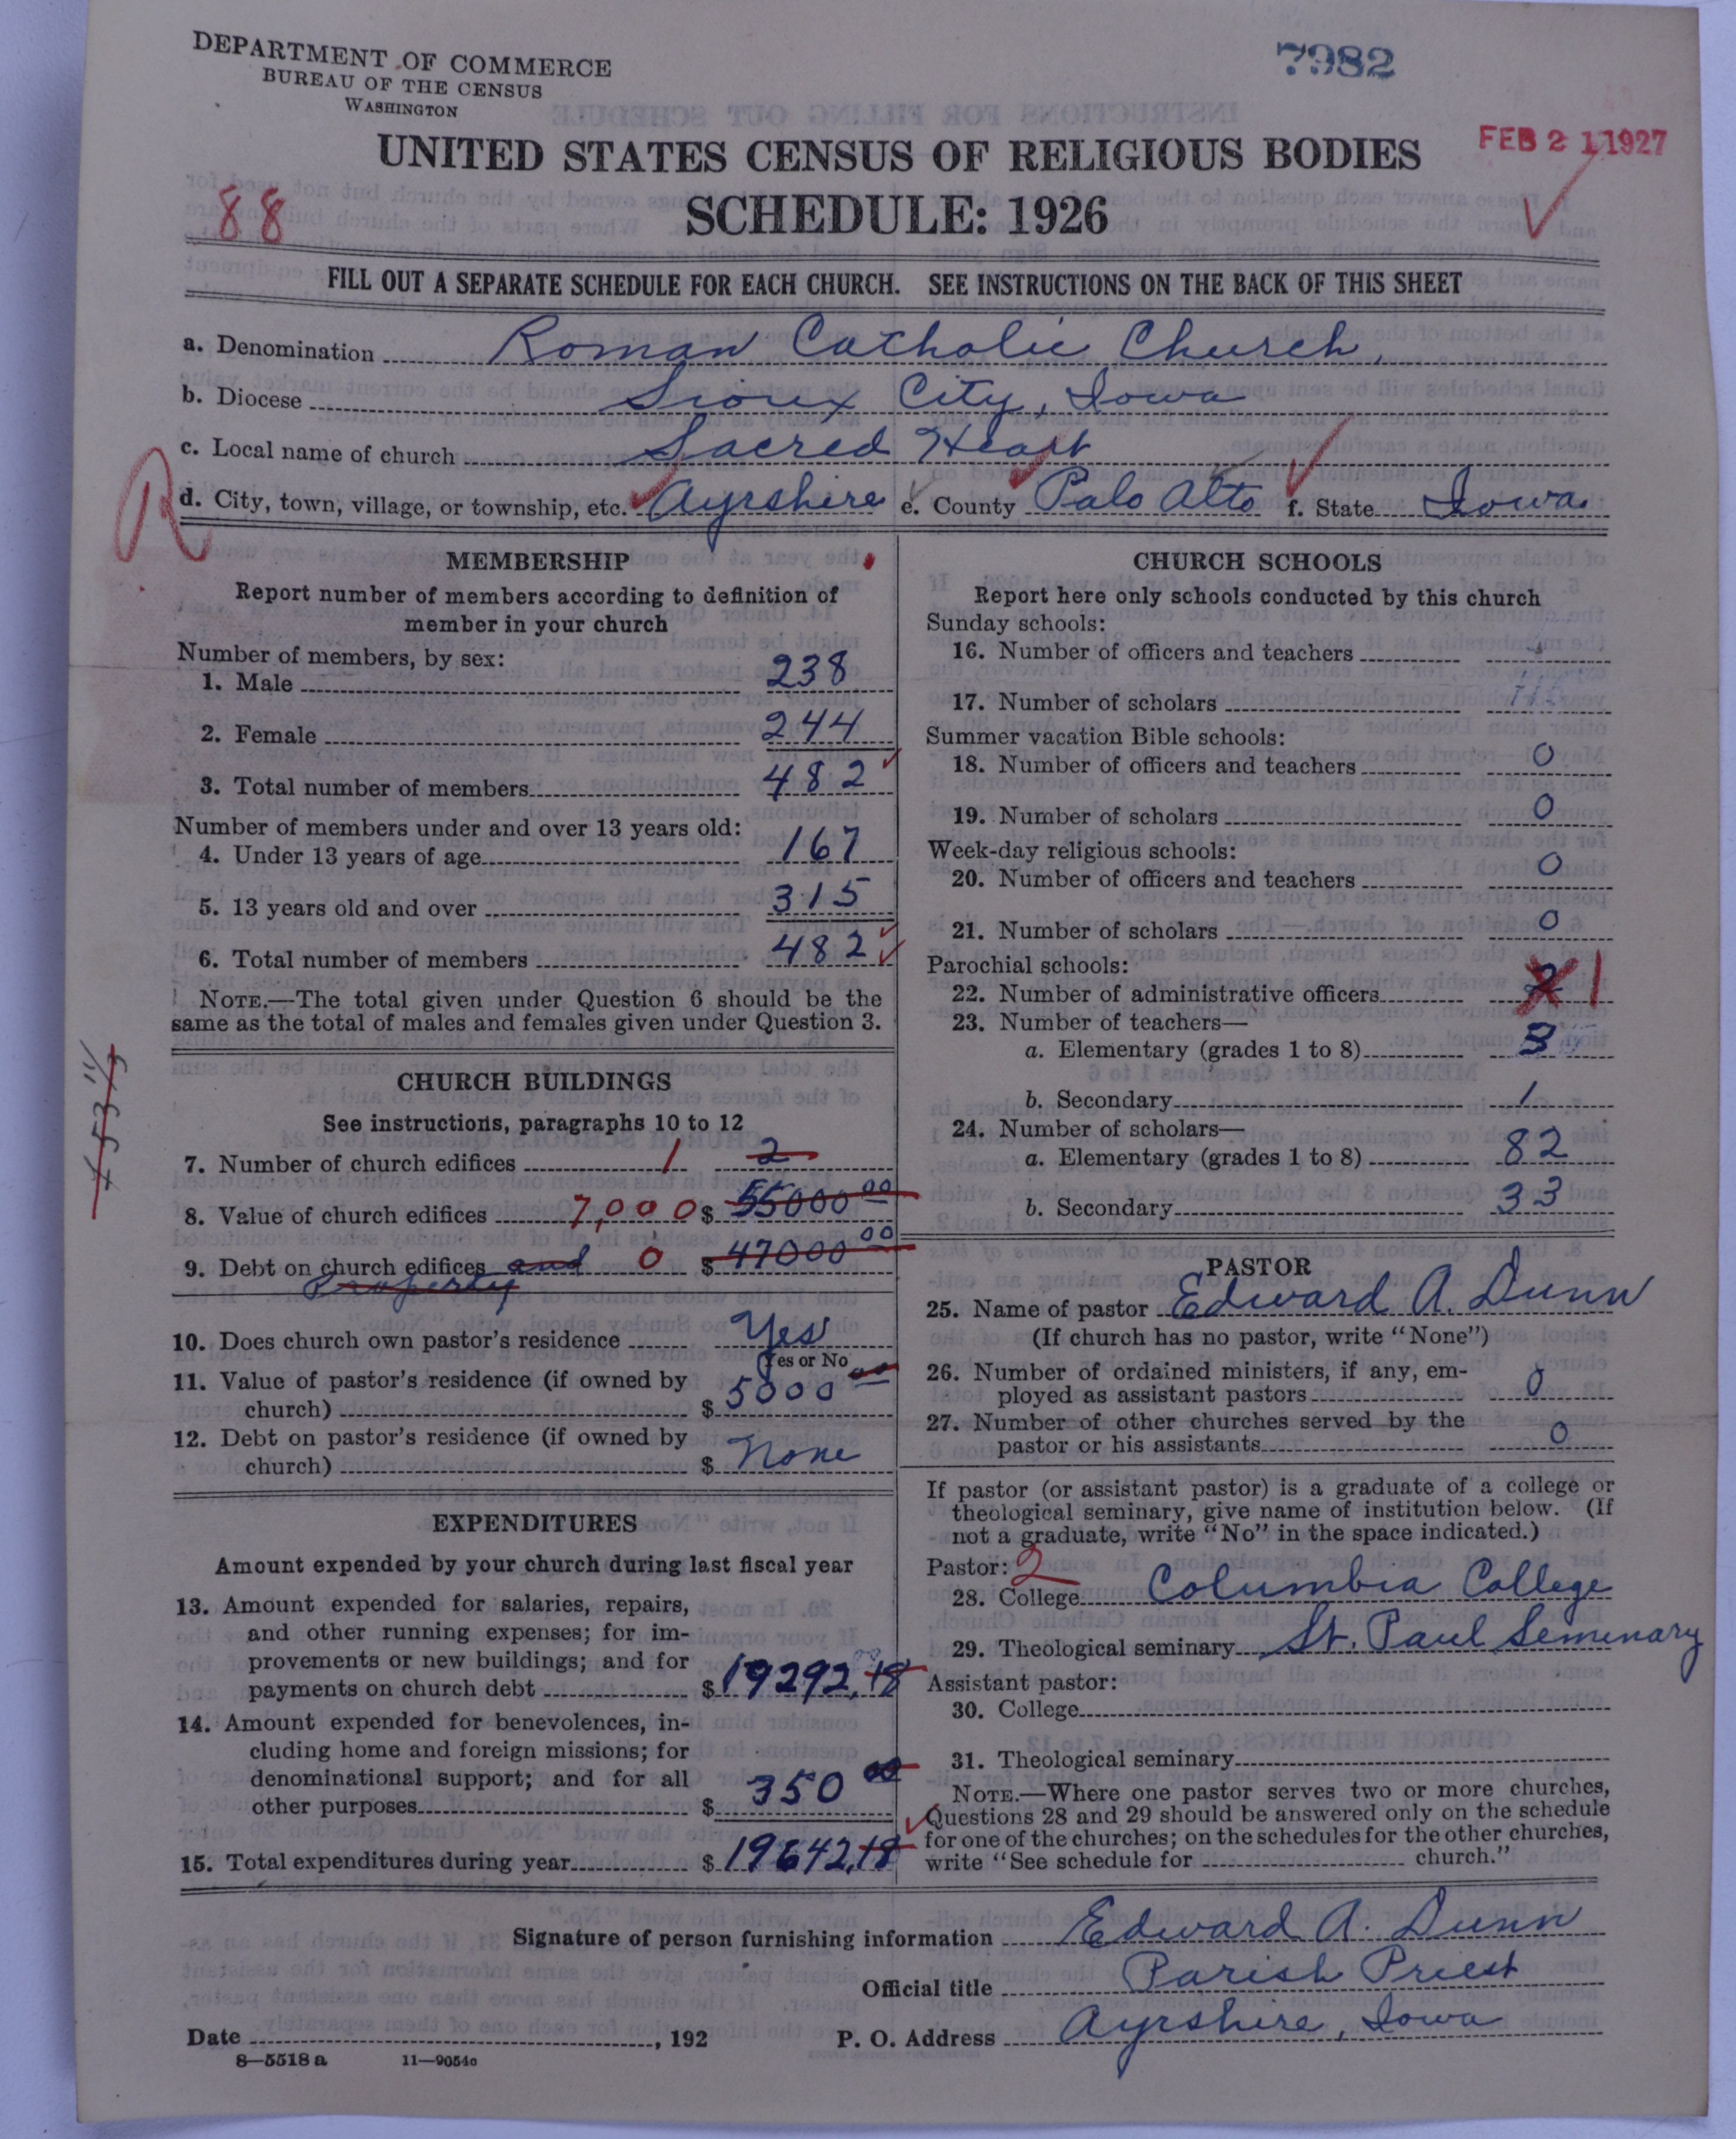 DEPARTMENT OF COMMERCE
BUREAU OF THE CENSUS
WASHINGTON
7982
UNITED STATES CENSUS OF RELIGIOUS BODIES
FEB 21 1927
88
SCHEDULE: 1926
FILL OUT A SEPARATE SCHEDULE FOR EACH CHURCH. SEE INSTRUCTIONS ON THE BACK OF THIS SHEET
a. Denomination Roman Catholic Church.
b. Diocese Sioux City, Iowa
c. Local name of church Sacred Heart
R
d. City, town, village, or township, etc. Ayrshire e. County Palo Alto f. State Iowa.
MEMBERSHIP
Report number of members according to definition of
member in your church
Number of members, by sex:
1. Male 238
2. Female 244
3. Total number of members 482
Number of members under and over 13 years old:
4. Under 13 years of age 167
5. 13 years old and over 315
6. Total number of members 482
NOTE.—The total given under Question 6 should be the
same as the total of males and females given under Question 3.
CHURCH BUILDINGS
See instructions, paragraphs 10 to 12
7. Number of church edifices 1 2
8. Value of church edifices 7,000 $ 55000 00
9. Debt on church edifices and 0 $ 47000 00
Property
10. Does church own pastor's residence Yes
Yes or No
11. Value of pastor's residence (if owned by
church) $ 5000 00
12. Debt on pastor's residence (if owned by
church) $ None
EXPENDITURES
Amount expended by your church during last fiscal year
13. Amount expended for salaries, repairs,
and other running expenses; for im-
provements or new buildings; and for
payments on church debt $ 19292.18
14. Amount expended for benevolences, in-
cluding home and foreign missions; for
denominational support; and for all
other purposes $ 350 00
15. Total expenditures during year $ 19642.18
CHURCH SCHOOLS
Report here only schools conducted by this church
Sunday schools:
16. Number of officers and teachers
17. Number of scholars
Summer vacation Bible schools:
18. Number of officers and teachers 0
19. Number of scholars 0
Week-day religious schools:
20. Number of officers and teachers 0
21. Number of scholars 0
Parochial schools:
22. Number of administrative officers 1
23. Number of teachers—
a. Elementary (grades 1 to 8) 3
b. Secondary 1
24. Number of scholars—
a. Elementary (grades 1 to 8) 82
b. Secondary 33
PASTOR
25. Name of pastor Edward A. Dunn
(If church has no pastor, write "None")
26. Number of ordained ministers, if any, em-
ployed as assistant pastors 0
27. Number of other churches served by the
pastor or his assistants 0
If pastor (or assistant pastor) is a graduate of a college or
theological seminary, give name of institution below. (If
not a graduate, write "No" in the space indicated.)
Pastor: 2
28. College Columbia College
29. Theological seminary St. Paul Seminary
Assistant pastor:
30. College
31. Theological seminary
NOTE.—Where one pastor serves two or more churches,
Questions 28 and 29 should be answered only on the schedule
for one of the churches; on the schedules for the other churches,
write "See schedule for church."
Signature of person furnishing information Edward A. Dunn
Official title Parish Priest
Date , 192 P. O. Address Ayrshire, Iowa
8—5518 a 11—9054c